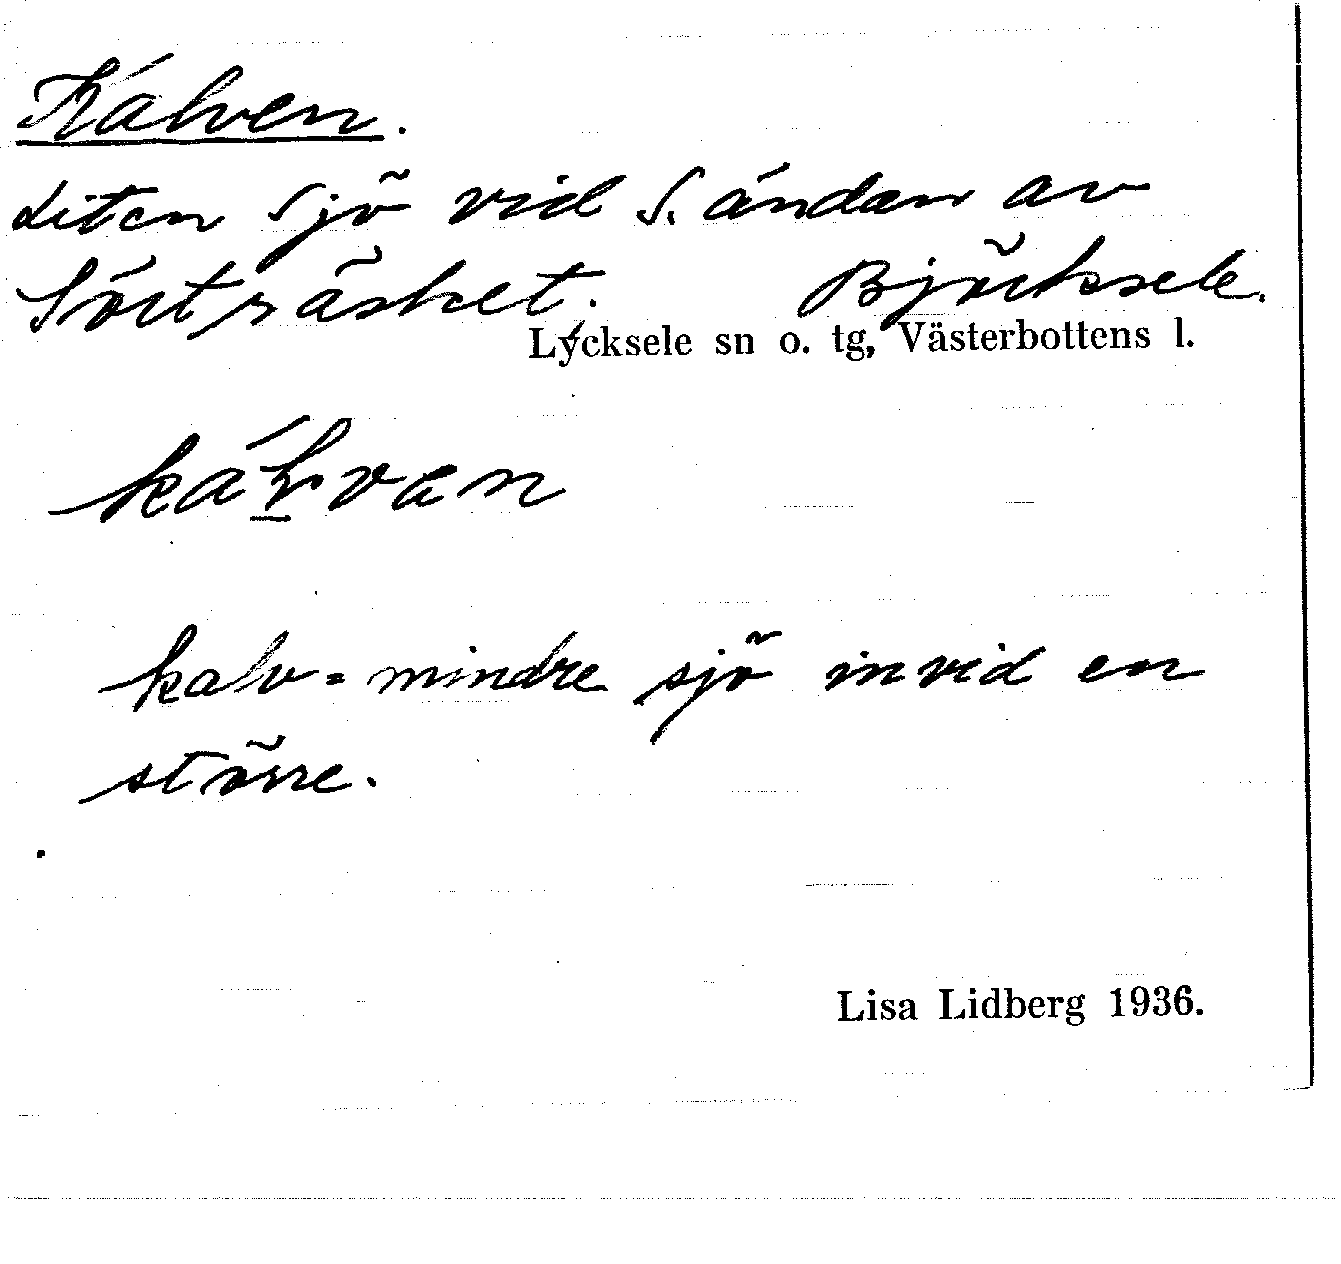 Kálven.
Liten sjö vid S. ändan av
Sörträsket. Björksele.
Lycksele sn o. tg, Västerbottens l.
kalv = mindre sjö invid en
större.
Lisa Lidberg 1936.